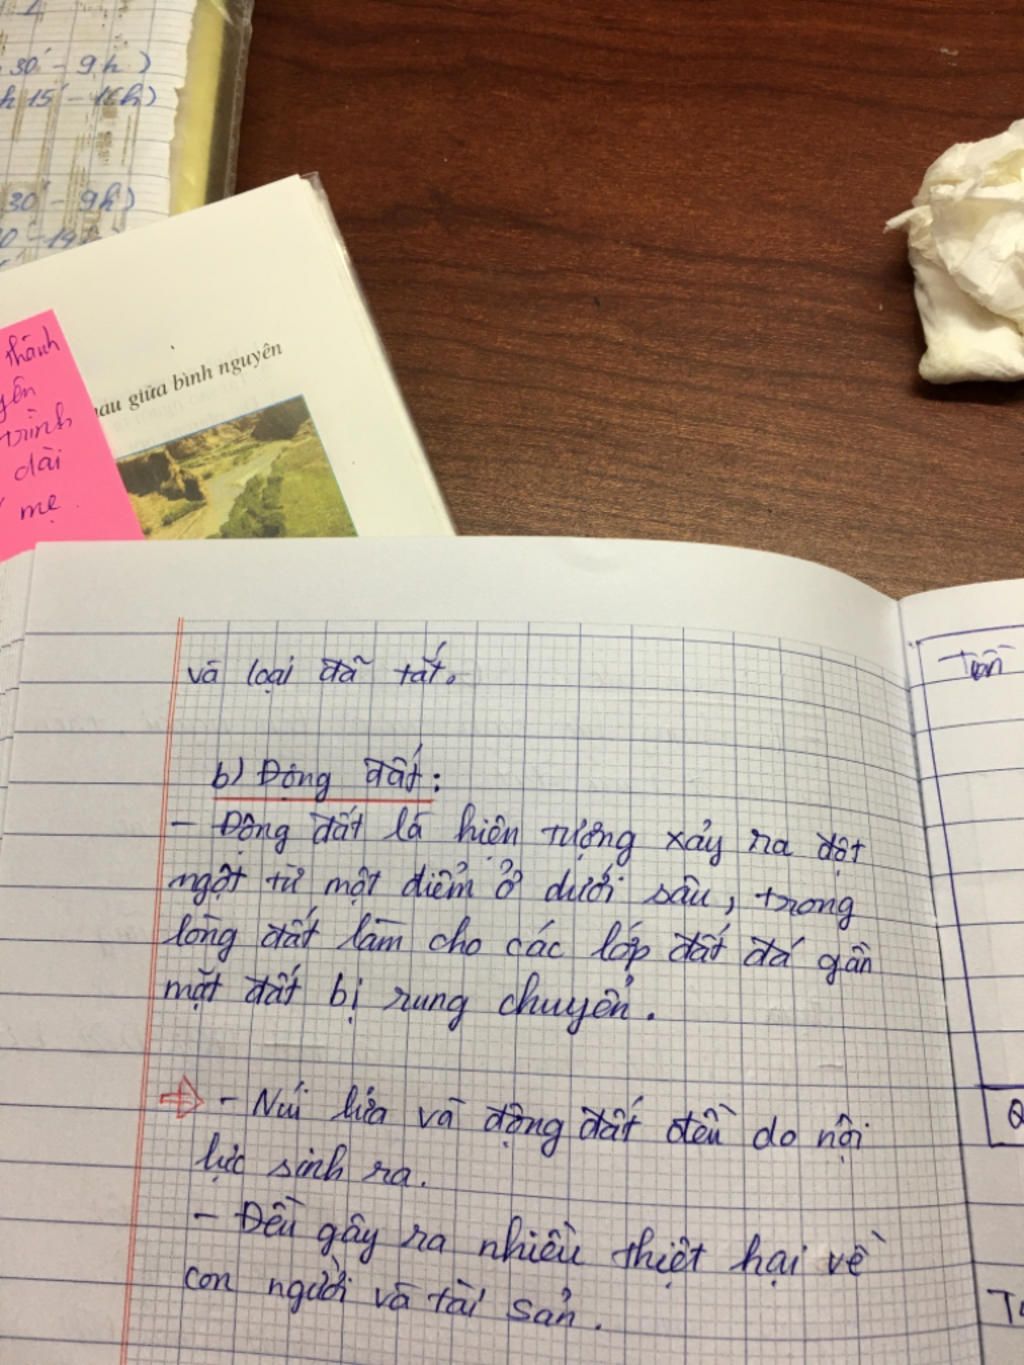 30' - 9h)
h 15' - 16h)
30' - 9h)
thành
trình
dài
mẹ
au giữa bình nguyên
và loại đã tắt.
b) Động đất:
- Động đất là hiện tượng xảy ra đột
ngột từ một điểm ở dưới sâu, trong
lòng đất làm cho các lớp đất đá gần
mặt đất bị rung chuyển.
⇨ - Núi lửa và động đất đều do nội
lực sinh ra.
- Đều gây ra nhiều thiệt hại về
con người và tài sản.
Tuần
Q